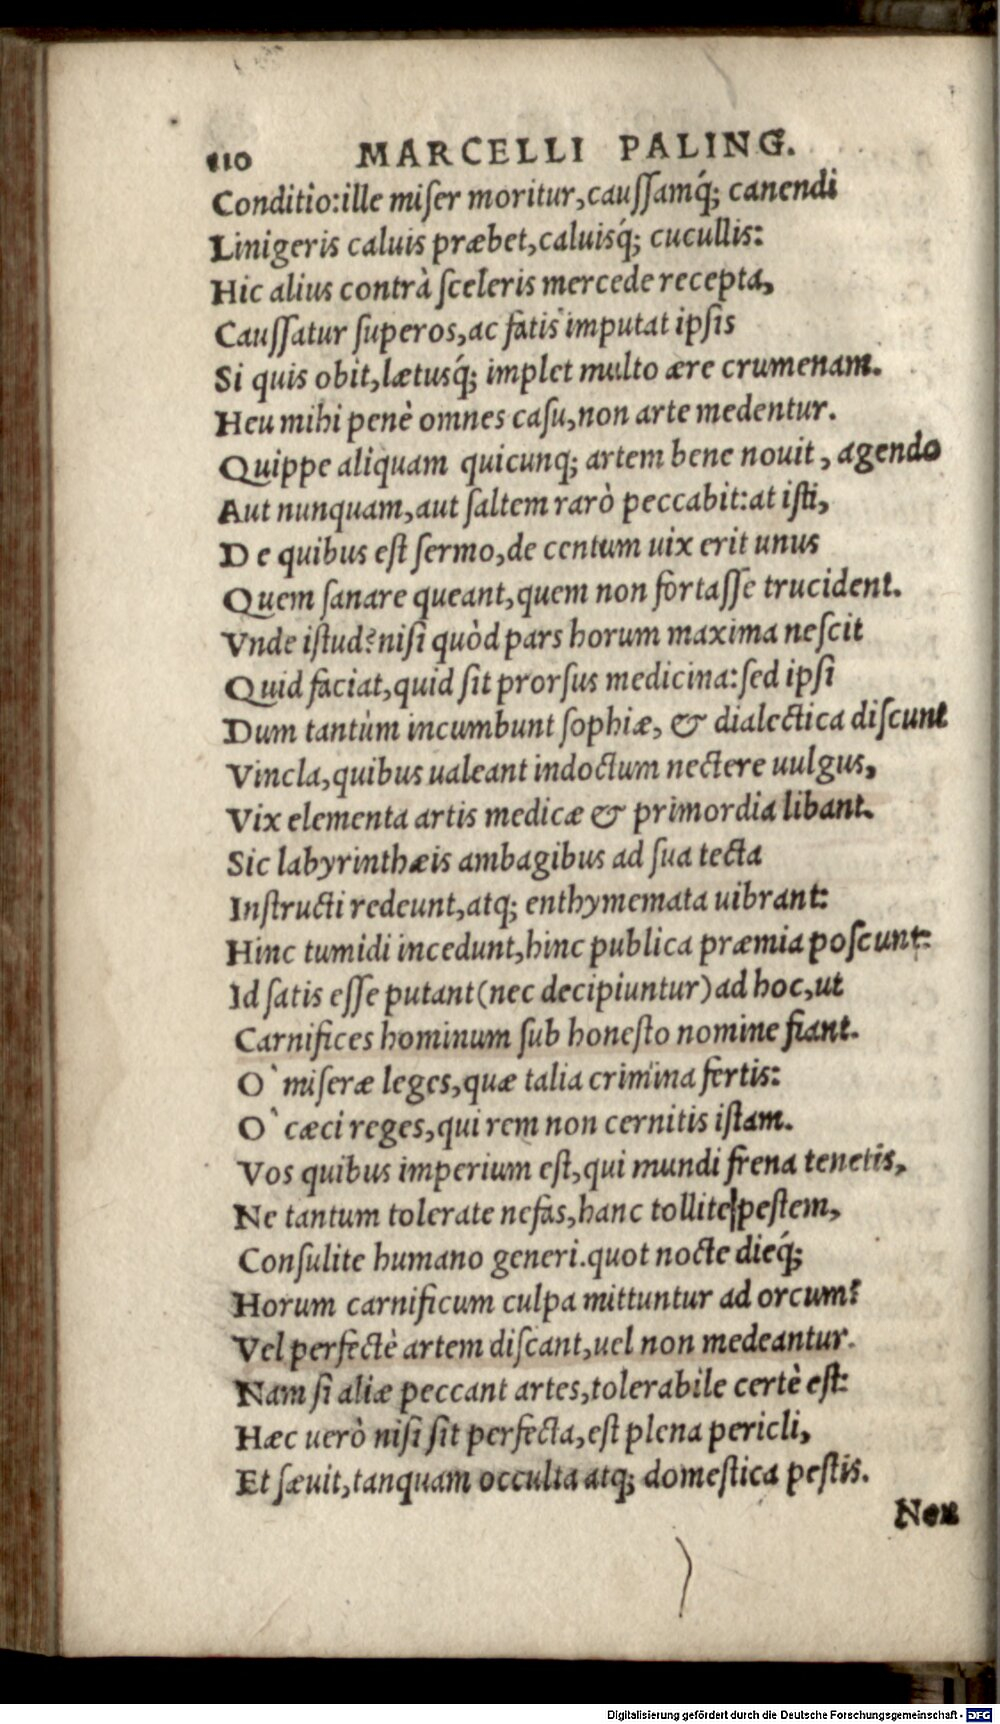 110 MARCELLI PALING.
Conditio:ille miſer moritur,cauſſamq́; canendi
Linigeris caluis præbet,caluisq́; cucullis:
Hic alius contrà ſceleris mercede recepta,
Cauſſatur ſuperos,ac fatis imputat ipſis
Si quis obit,lætusq́; implet multo ære crumenam.
Heu mihi penè omnes caſu,non arte medentur.
Quippe aliquam quicunq; artem bene nouit, agendo
Aut nunquam,aut ſaltem rarò peccabit:at iſti,
De quibus eſt ſermo,de centum uix erit unus
Quem ſanare queant,quem non fortaſſe trucident.
Vnde iſtud?niſi quòd pars horum maxima neſcit
Quid faciat,quid ſit prorſus medicina:ſed ipſi
Dum tantùm incumbunt ſophiæ, & dialectica diſcunt
Vincla,quibus ualeant indoctum nectere uulgus,
Vix elementa artis medicæ & primordia libant.
Sic labyrinthæis ambagibus ad ſua tecta
Inſtructi redeunt,atq; enthymemata uibrant:
Hinc tumidi incedunt,hinc publica præmia poſcunt:
Id ſatis eſſe putant(nec decipiuntur)ad hoc,ut
Carnifices hominum ſub honeſto nomine fiant.
O` miſeræ leges,quæ talia crimina fertis:
O` cæci reges,qui rem non cernitis iſtam.
Vos quibus imperium eſt,qui mundi frena tenetis,
Ne tantum tolerate nefas,hanc tollite peſtem,
Conſulite humano generi.quot nocte dieq́;
Horum carnificum culpa mittuntur ad orcum?
Vel perfectè artem diſcant,uel non medeantur.
Nam ſi aliæ peccant artes,tolerabile certè eſt:
Hæc uerò niſi ſit perfecta,eſt plena pericli,
Et ſæuit,tanquam occulta atq; domeſtica peſtis.
Nex
Digitalisierung gefördert durch die Deutsche Forschungsgemeinschaft - DFG